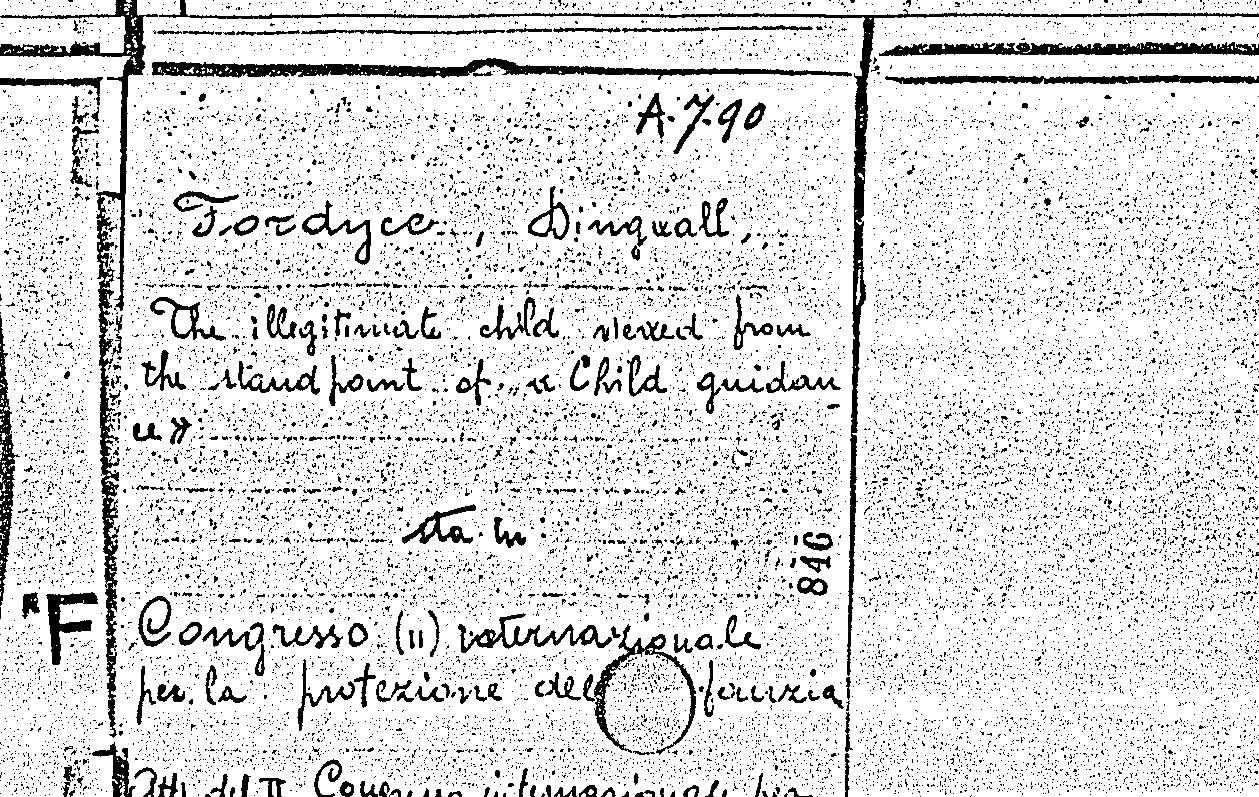 A.7.90
Fordyce, Dingwall,
The illegitimate child viewed from
the standpoint of « Child guidan
ce»
sta in:
846
Congresso (II) internazionale
per la protezione dell' infanzia
"F
Atti del II Congresso internazionale per